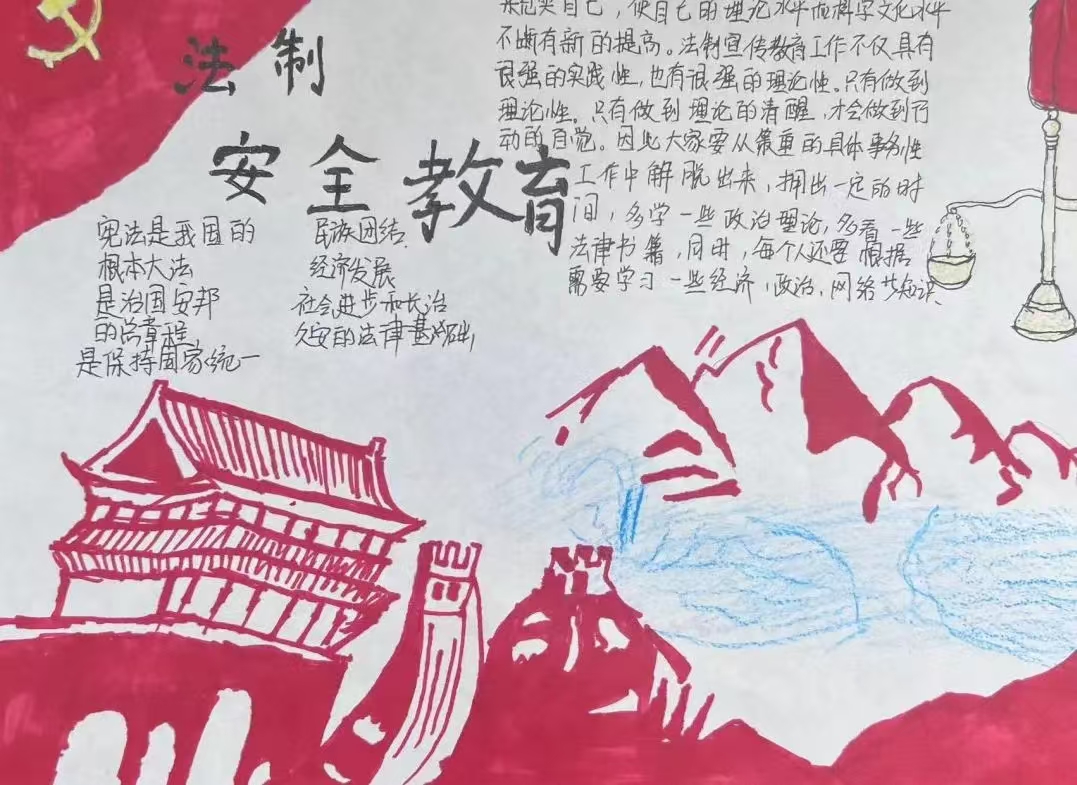 法制
安全教育
来充实自己，使自己的理论水平和科学文化水平
不断有新的提高。法制宣传教育工作不仅具有
很强的实践性，也有很强的理论性。只有做到
理论性。只有做到理论的清醒，才会做到行
动的自觉。因此大家要从繁重的具体事务性
工作中解脱出来，拥出一定的时
间，多学一些政治理论，多看一些
法律书籍，同时，每个人还要根据
需要学习一些经济，政治，网络步知识
宪法是我国的
根本大法
是治国安邦
的总章程
是保持国家统一
民族团结
经济发展
社会进步和长治
久安的法律基础